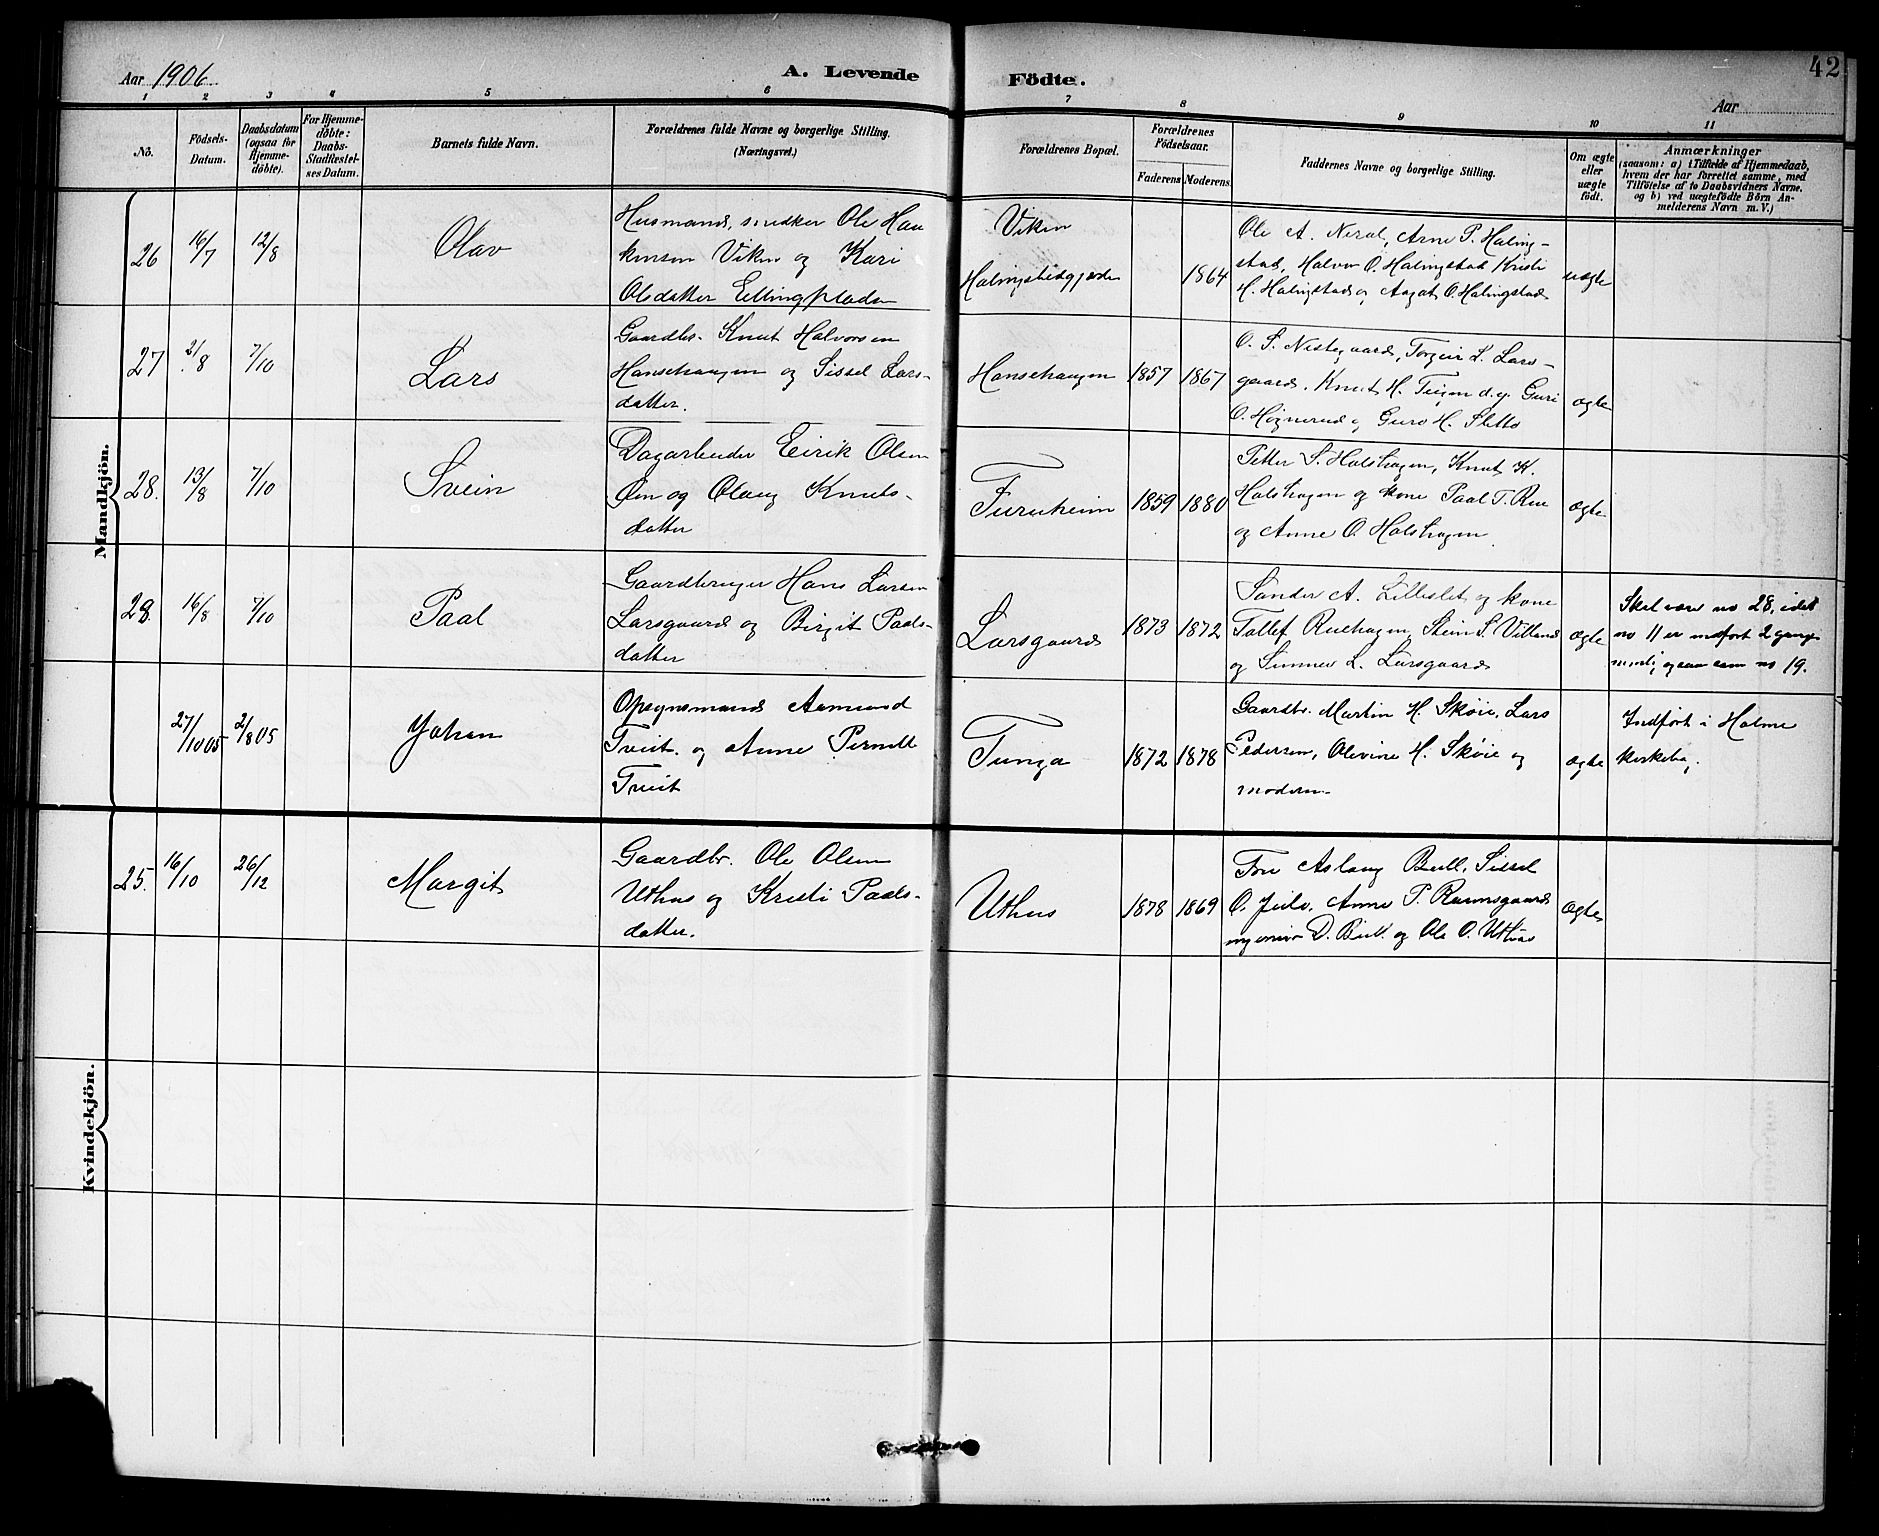 Aar 1906
A. Levende Födte.
Aar
42
1 2 3 4 5 6 7 8 9 10 11
No.
Födsels-Datum.
Daabsdatum (ogsaa for Hjemme-döbte).
For Hjemme-döbte: Daabs-Stadfæstel-ses Datum.
Barnets fulde Navn.
Forældrenes fulde Navne og borgerlige Stilling.
(Næringsvei.)
Forældrenes Bopæl.
Forældrenes Födselsaar.
Faderens Moderens
Faddernes Navne og borgerlige Stilling.
Om ægte eller uægte födt.
Anmærkninger
(saasom: a) i Tilfælde af Hjemmedaab,
hvem der har forrettet samme, med
Tilföielse af to Daabsvidners Navne.
og b) ved uægtefödte Börn An-
melderens Navn m. V.)
Mandkjön.
26 16/7 12/8 Olav
Husmand, snedker Ole Haa
kensen Viken og Kari
Olsdatter Ellingpladsn
Viken
1864
Ole A. Neral, Arne P. Haling-
stad, Halvor O. Halingstad Kristi
H. Halingstad og Aagat O. Halingstad
uægte
27 2/8 7/10 Lars
Gaardbr. Knut Halvorsen
Hansehaugen og Sissel Lars-
datter.
Hansehaugen 1857 1867
O. S. Nestegaard, Torgeir L. Lars-
gaard, Knut H. Teigen d.y. Guri
O. Høgnerud og Guro H. Sletto
ægte
28. 13/8 7/10 Svein
Dagarbeider Eirik Olsen
Øen og Olaug Knuts-
datter
Furuheim 1859 1880
Petter S. Halshagen, Knut K.
Halshagen og kone Paal T. Rue
og Anne O. Halshagen
ægte
28. 16/8 7/10 Paal
Gaardbruger Hans Larsen
Larsgaard og Birgit Paals-
datter
Larsgaard 1873 1872
Sander A. Lilleslet og kone
Tollef Ruehagen, Stein S. Villand
og Sunnev L. Larsgaard
ægte
Skal være no 28, idet
no 11 er indført 2 gange
ogsaa som no 19.
27/10 05 2/8 05 Johan
Opsynsmand Aamund
Tveit. og Anne Pernille
Tveit
Tunga 1872 1878
Gaardbr. Martin H. Skøie, Lars
Pedersen, Olevine H. Skøie og
moderen
ægte
Indført i Holme
kirkebog.
Kvindekjön.
25. 16/10 26/12 Margit
Gaardbr. Ole Olsen
Uthus og Kristi Paals-
datter.
Uthus 1878 1869
Fru Aslaug Bull, Sissel
O. Anne P. Raunsgaard
D. Bull og Ole O. Uthus
ægte